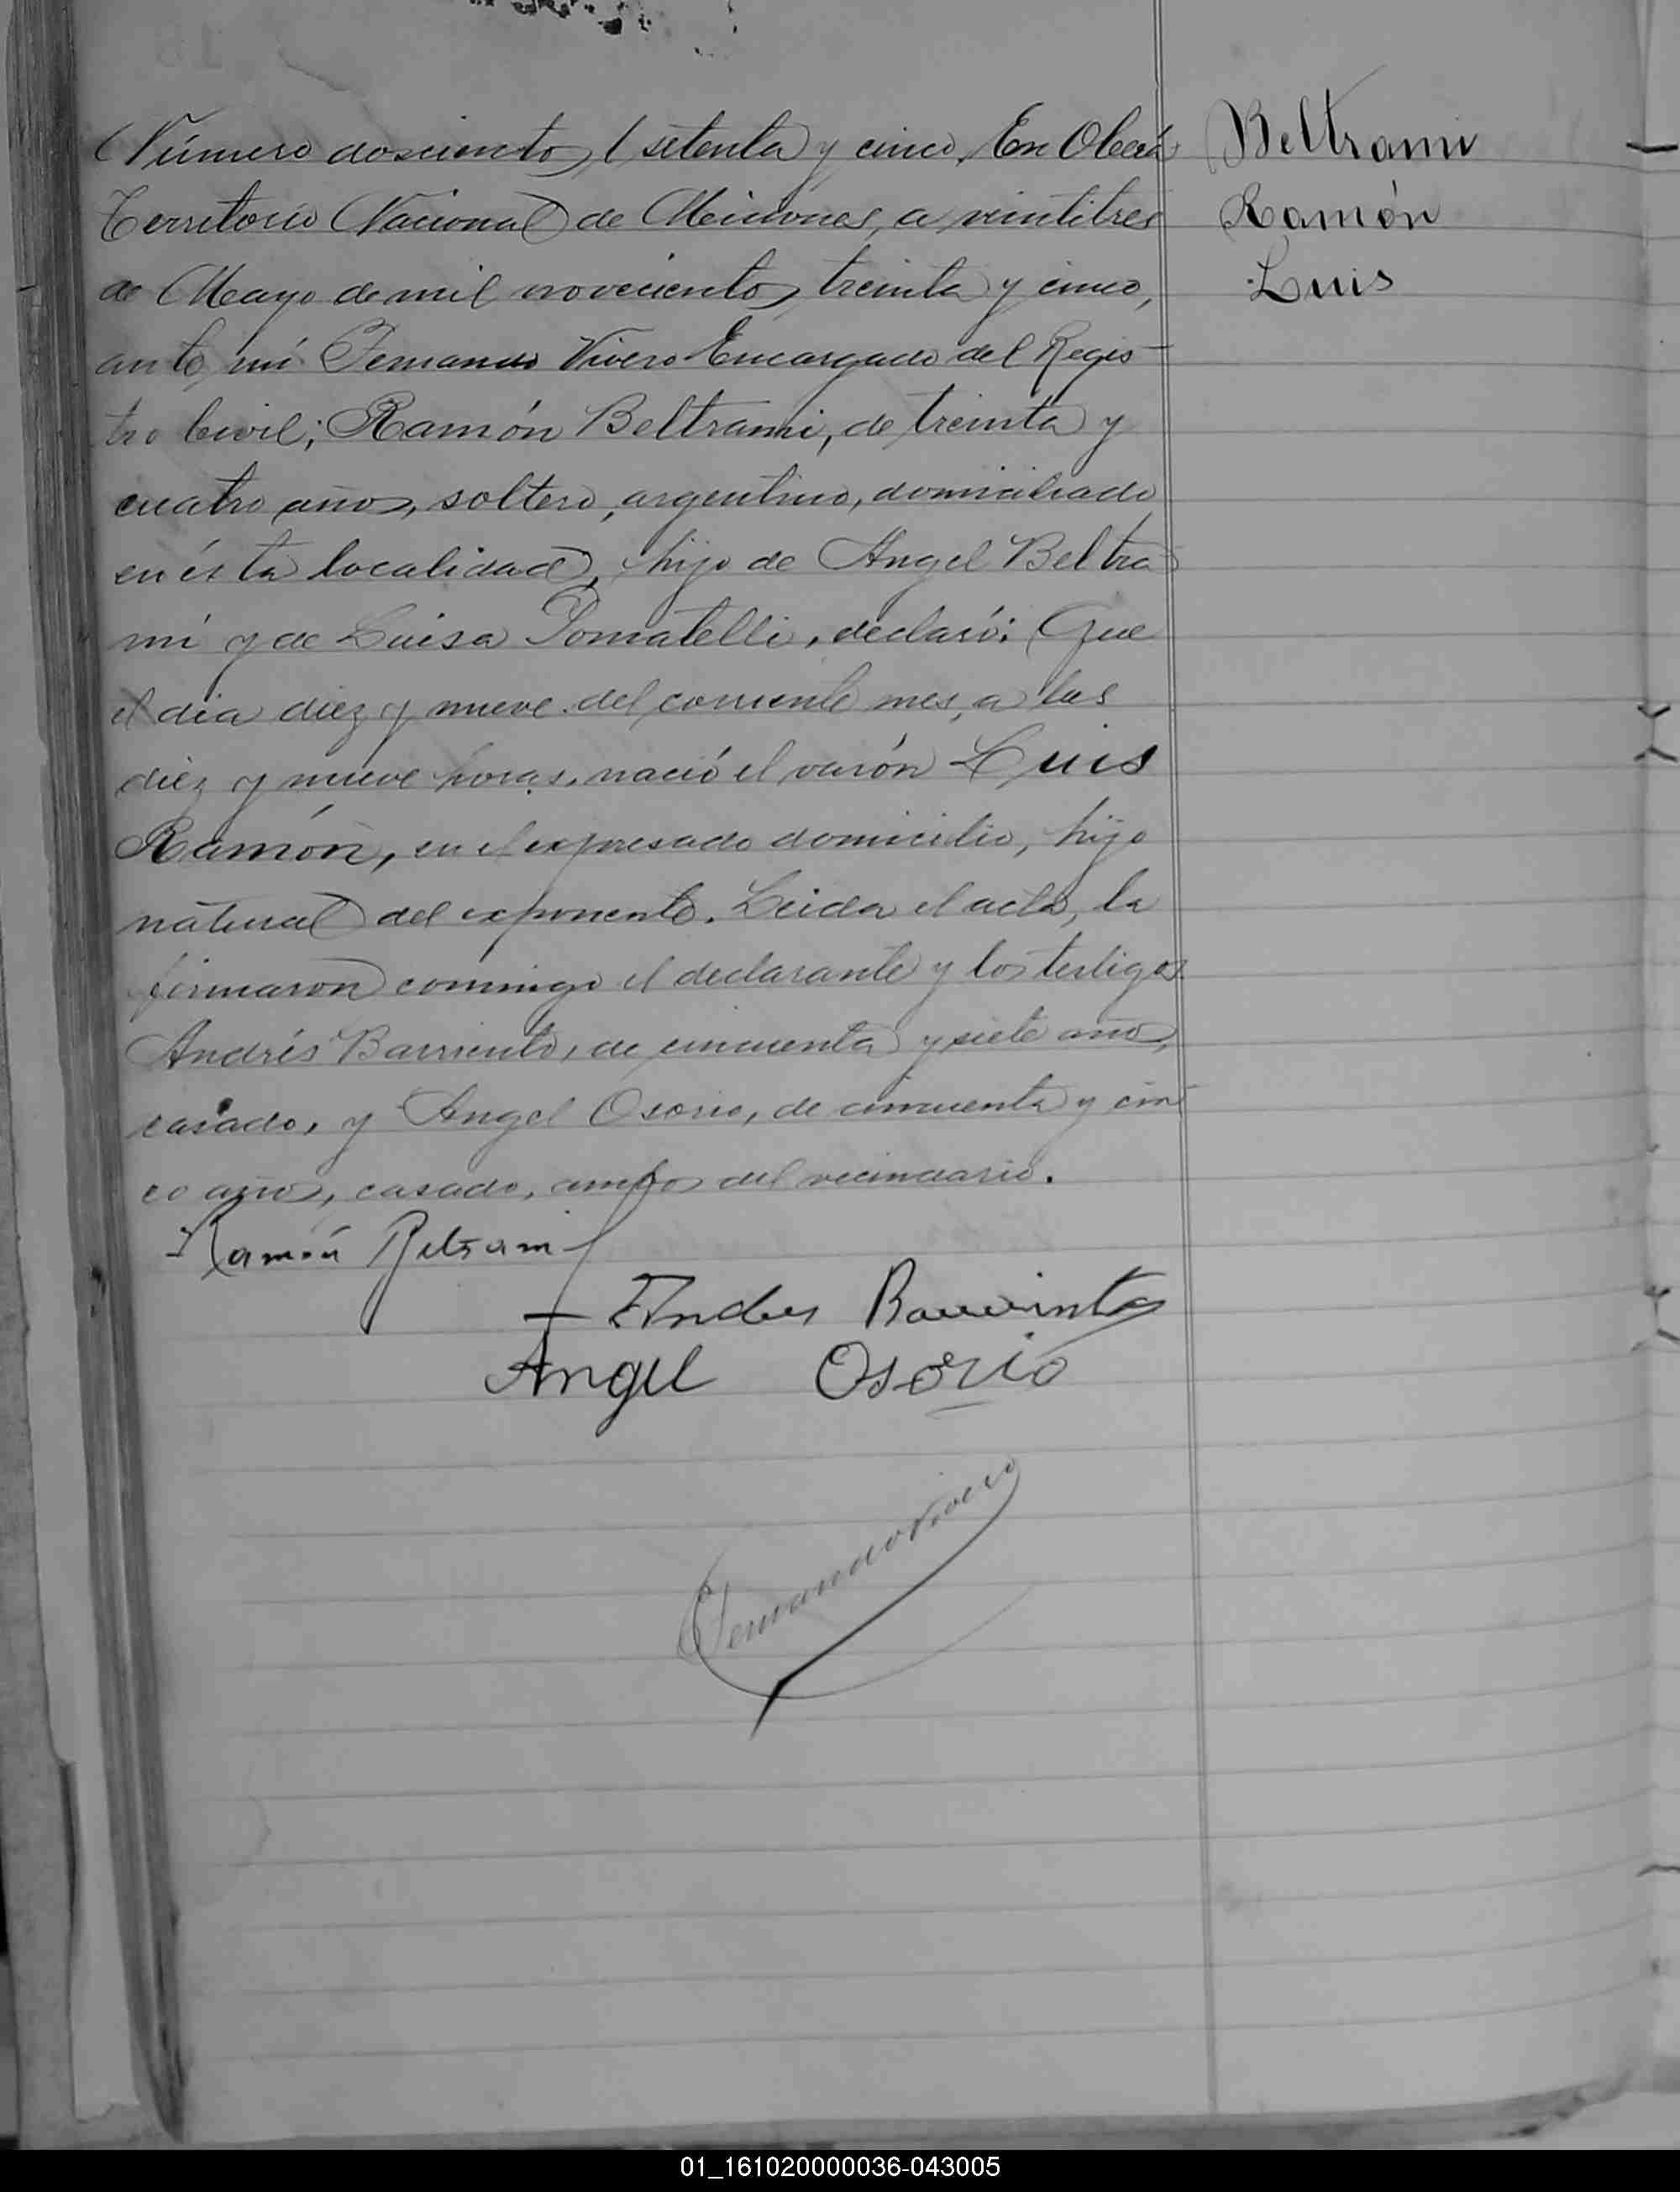 Número doscientos setenta y cinco. En Oberá
Territorio Nacional de Misiones, a veintitres
de Mayo de mil novecientos treinta y cinco,
ante mí Fernando Vivero Encargado del Regis-
tro Civil; Ramón Beltrami, de treinta y
cuatro años, soltero, argentino, domiciliado
en ésta localidad, hijo de Angel Beltra-
mi y de Luisa Pomatelli, declaró: Que
el dia diez y nueve del corriente mes, a las
diez y nueve horas, nació el varón Luis
Ramón, en el expresado domicilio, hijo
natural del exponente. Leida el acta, la
firmaron conmigo el declarante y los testigos
Andrés Barriento, de cincuenta y siete años,
casado, y Angel Osorio, de cincuenta y cin-
co años, casado, ambos del vecindario.
Beltrami
Ramón
Luis
Ramón Beltrami
Andres Barrientos
Angel Osorio
Fernando Vivero
01_161020000036-043005